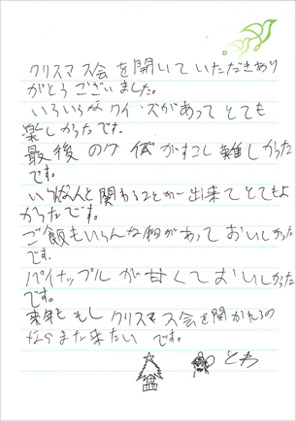 クリスマス会を開いていただきあり
がとうございました。
いろいろなクイズがあってとても
楽しかったです。
最後のクイズがすこし難しかった
です。
いろんな人と関わることが出来てとてもよ
かったです。
ご飯もいろんな物があっておいしかった
です。
パイナップルが甘くておいしかった
です。
来年ももしクリスマス会を開かれるの
ならまた来たいです。